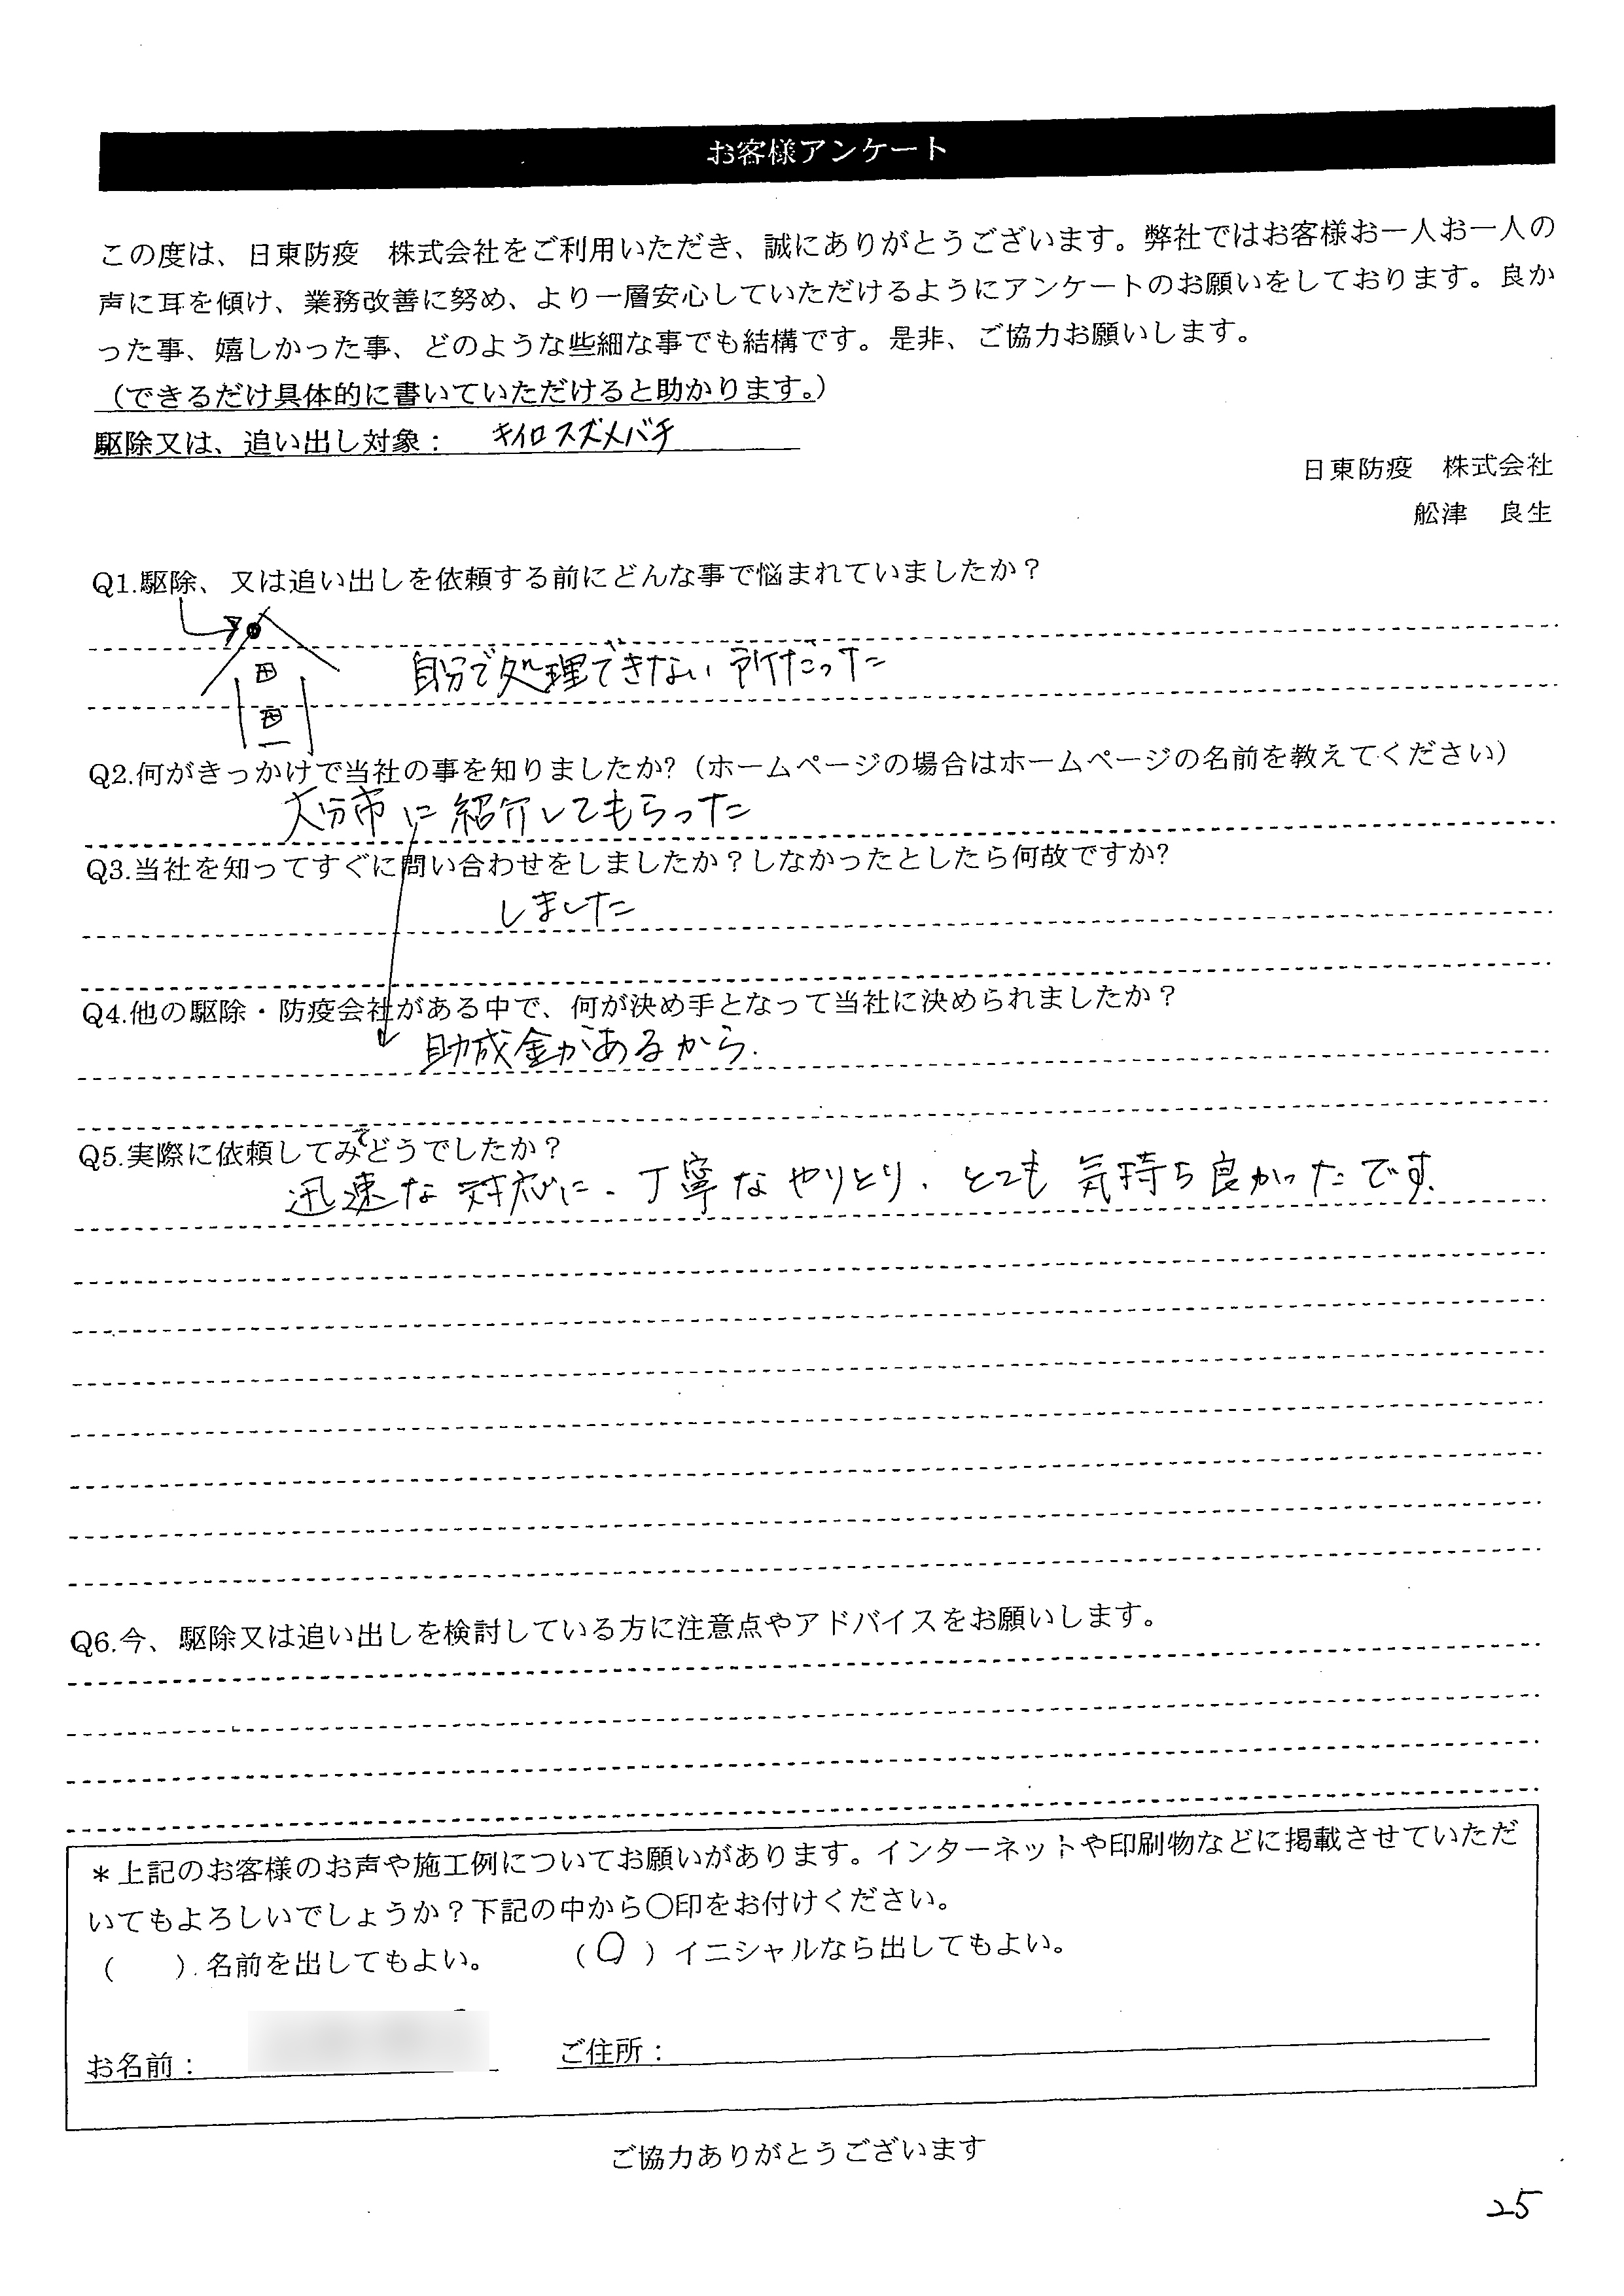 お客様アンケート
この度は、日東防疫 株式会社をご利用いただき、誠にありがとうございます。弊社ではお客様お一人お一人の
声に耳を傾け、業務改善に努め、より一層安心していただけるようにアンケートのお願いをしております。良か
った事、嬉しかった事、どのような些細な事でも結構です。是非、ご協力お願いします。
（できるだけ具体的に書いていただけると助かります。）
駆除又は、追い出し対象： キイロスズメバチ
日東防疫 株式会社
舩津 良生
Q1.駆除、又は追い出しを依頼する前にどんな事で悩まれていましたか？
自分で処理できない所だった
Q2.何がきっかけで当社の事を知りましたか?（ホームページの場合はホームページの名前を教えてください）
大分市に紹介してもらった
Q3.当社を知ってすぐに問い合わせをしましたか？しなかったとしたら何故ですか?
しました
Q4.他の駆除・防疫会社がある中で、何が決め手となって当社に決められましたか？
助成金があるから.
Q5.実際に依頼してみてどうでしたか？
迅速な対応に、丁寧なやりとり、とても気持ち良かったです.
Q6.今、駆除又は追い出しを検討している方に注意点やアドバイスをお願いします。
＊上記のお客様のお声や施工例についてお願いがあります。インターネットや印刷物などに掲載させていただ
いてもよろしいでしょうか？下記の中から〇印をお付けください。
（ ）.名前を出してもよい。 （〇）イニシャルなら出してもよい。
お名前： ご住所：
ご協力ありがとうございます
25